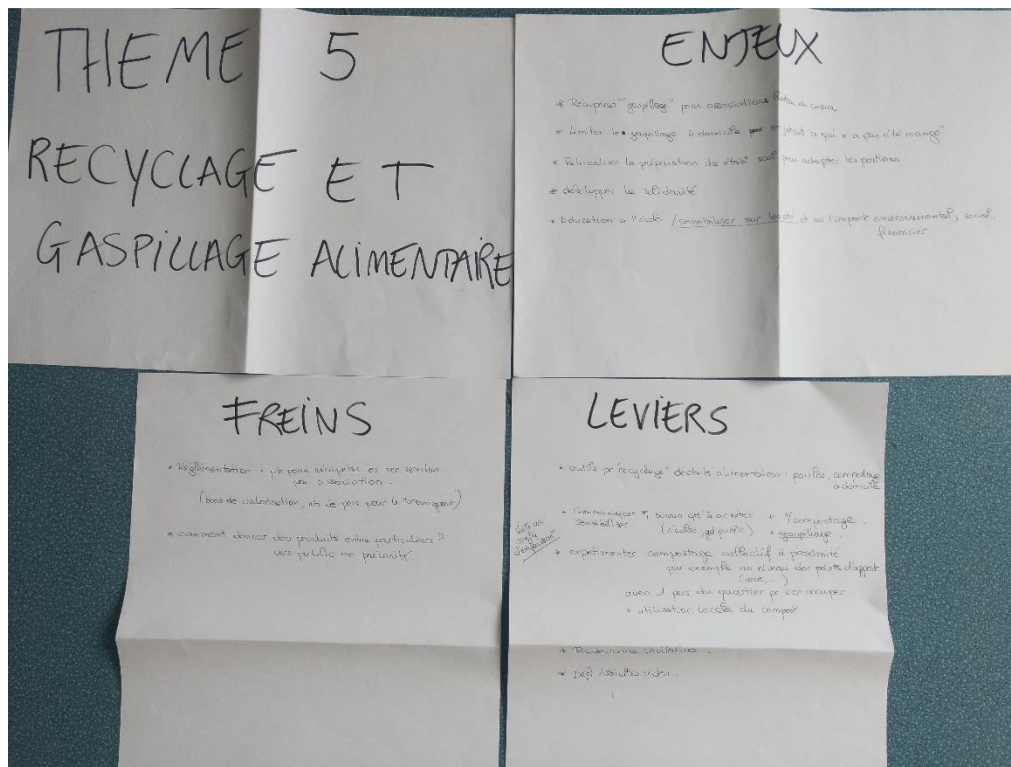 THEME 5
RECYCLAGE ET
GASPILLAGE ALIMENTAIRE
ENJEUX
* Récupérer "gaspillage" pour associations Restos du coeur
* Limiter le gaspillage à domicile qui n'a pas été mangé"
* Relocaliser la préparation des étabt scol pour adapter les portions
* développer la solidarité
* Education à l'école / sensibiliser sur et sur l'impact environnemental, social,
financier
FREINS
* Réglementation : pb pour récupérer et
association.
(bons de valorisation, nb de pers pour le transport)
* comment donner des produits entre particuliers ?
vers public en précarité
LEVIERS
* outils pr "recyclage" déchets alimentaires : poules, compostage
à domicile
* Communiquer qté à acheter + compostage
sensibiliser (écoles, gd public) + gaspillage
* expérimenter compostage collectif à proximité
par exemple au niveau des points d'apport
(verre, ...)
avec 1 pers du quartier pr s'en occuper
+ utilisation locale du compost
* Redevance incitative
* Défi